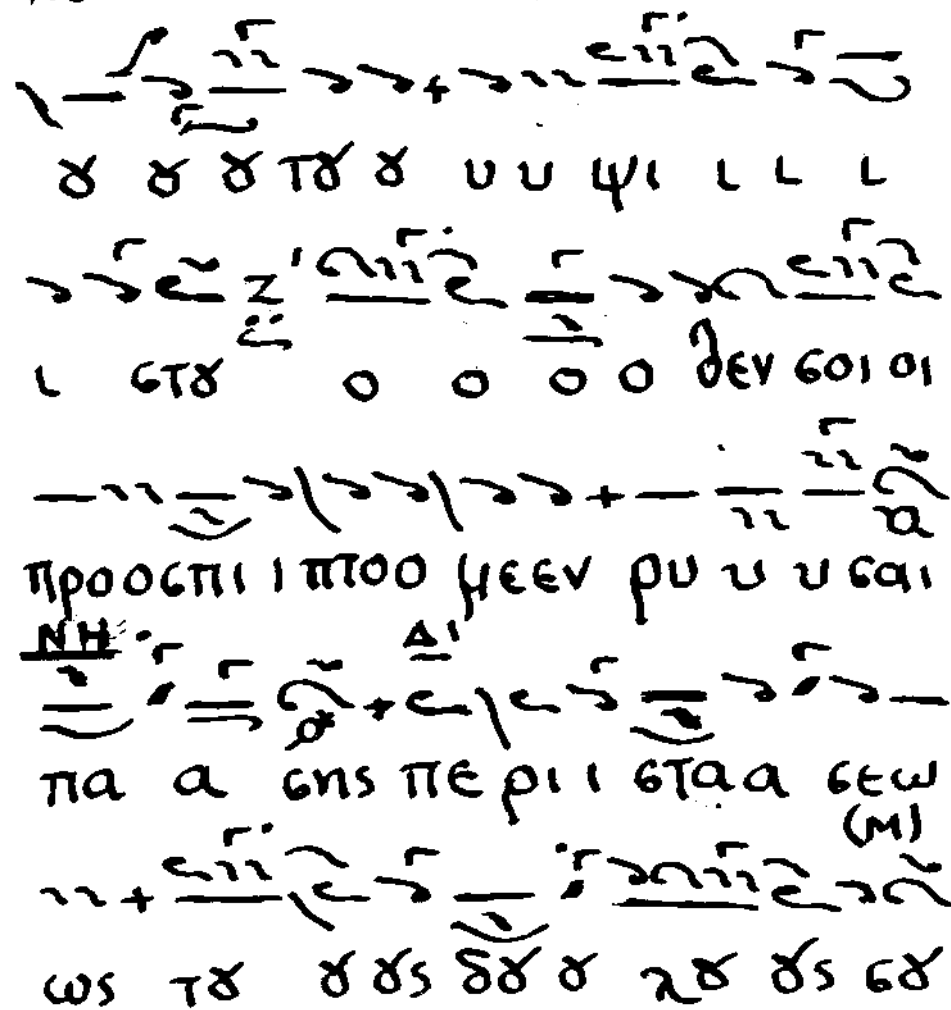 ȣ ȣ ȣ τȣ ȣ υ υ ψι ι ι ι
ι στȣ ο ο ο ο θεν σοι οι
προοσπι ι ι πτοο μεεν ρυ υ υ σαι
ΝΗ Δι
πα α σης πε ρι ι ι σταα α σεω
(Μ)
ως τȣ ȣ ȣς δȣ ȣ λȣ ȣς σȣ